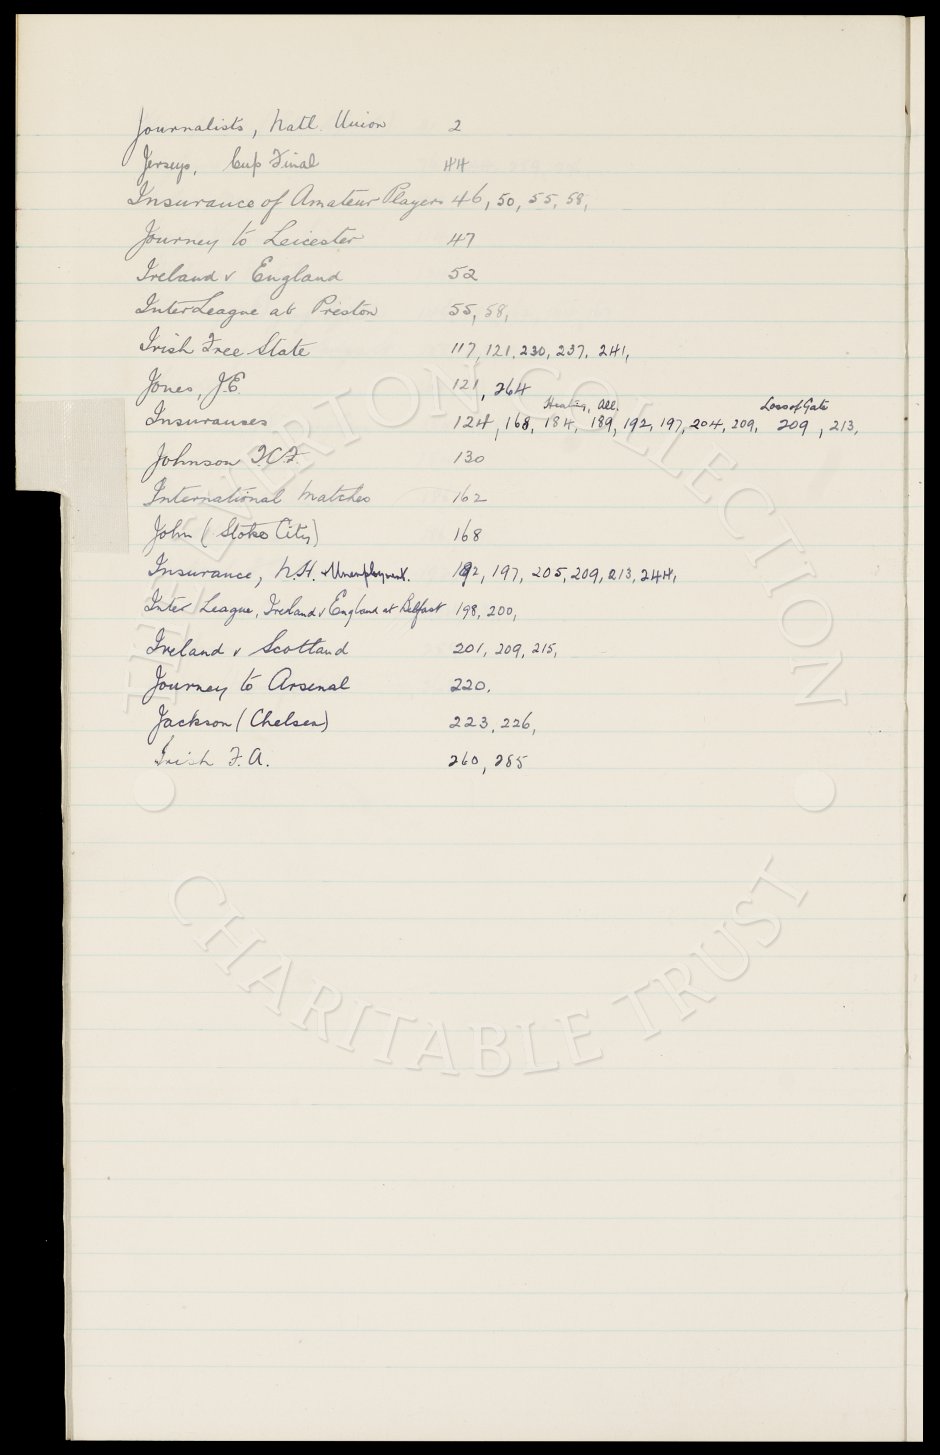 Journalists, Natl. Union 2
Jerseys, Cup Final 44
Insurance of Amateur Players 46, 50, 55, 58,
Journey to Leicester 47
Ireland v England 52
InterLeague at Preston 55, 58,
Irish Free State 117, 121, 230, 237, 241,
Jones, J.E. 121, 264
Healing, All. Loss of Gate
Insurances 124, 168, 184, 189, 192, 197, 204, 209, 209, 213,
Johnson T.C.F. 130
International Matches 162
John (Stoke City) 168
Insurance, N.H. & Unemployment. 192, 197, 205, 209, 213, 244,
Inter League, Ireland v England at Belfast 198, 200,
Ireland v Scotland 201, 209, 215,
Journey to Arsenal 220.
Jackson (Chelsea) 223, 226,
Irish F.A. 260, 285
THE EVERTON COLLECTION
CHARITABLE TRUST